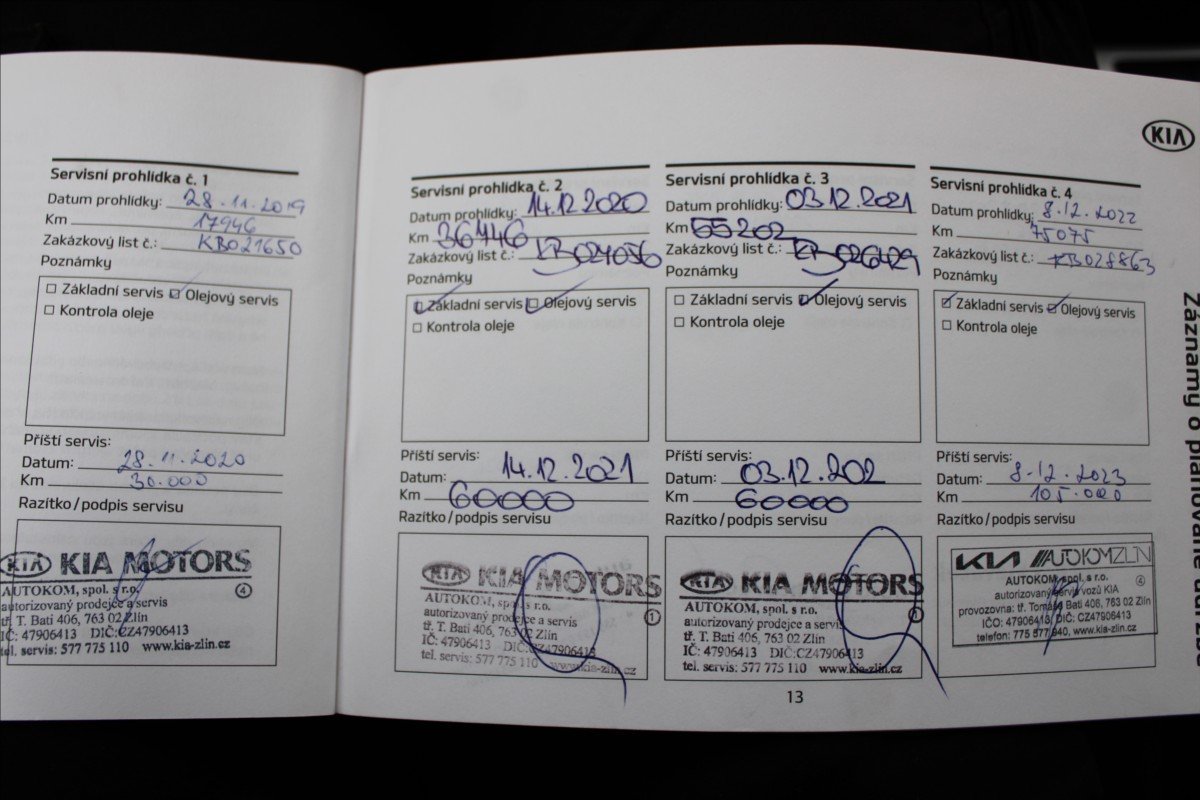 KIA
Servisní prohlídka č. 1
Datum prohlídky: 28.11.2019
Km 17946
Zakázkový list č.: KB021650
Poznámky
Základní servis Olejový servis
Kontrola oleje
Příští servis:
Datum: 28.11.2020
Km 30.000
Razítko/podpis servisu
KIA KIA MOTORS
AUTOKOM, spol. s r.o. 4
autorizovaný prodejce a servis
tř. T. Bati 406, 763 02 Zlín
IČ: 47906413 DIČ:CZ47906413
tel. servis: 577 775 110 www.kia-zlin.cz
Servisní prohlídka č. 2
Datum prohlídky: 14.12.2020
Km 36446
Zakázkový list č.: KB024056
Poznámky
Základní servis Olejový servis
Kontrola oleje
Příští servis:
Datum: 14.12.2021
Km 60000
Razítko/podpis servisu
KIA KIA MOTORS
AUTOKOM, spol. s r.o. 1
autorizovaný prodejce a servis
tř. T. Bati 406, 763 02 Zlín
IČ: 47906413 DIČ:CZ47906413
tel. servis: 577 775 110 www.kia-zlin.cz
Servisní prohlídka č. 3
Datum prohlídky: 03.12.2021
Km 55202
Zakázkový list č.: KB026429
Poznámky
Základní servis Olejový servis
Kontrola oleje
Příští servis:
Datum: 03.12.202
Km 60000
Razítko/podpis servisu
KIA KIA MOTORS
AUTOKOM, spol. s r.o.
autorizovaný prodejce a servis
tř. T. Bati 406, 763 02 Zlín
IČ: 47906413 DIČ:CZ47906413
tel. servis: 577 775 110 www.kia-zlin.cz
Servisní prohlídka č. 4
Datum prohlídky: 8.12.2022
Km 75075
Zakázkový list č.: KB028863
Poznámky
Základní servis Olejový servis
Kontrola oleje
Příští servis:
Datum: 8.12.2023
Km 105.000
Razítko/podpis servisu
KIA AUTOKOMZLIN
AUTOKOM spol. s r.o. 4
autorizovaný servis vozů KIA
provozovna: tř. Tomáše Bati 406, 763 02 Zlín
IČO: 47906413, DIČ: CZ47906413
telefon: 775 577 940, www.kia-zlin.cz
13
Záznamy o plánované